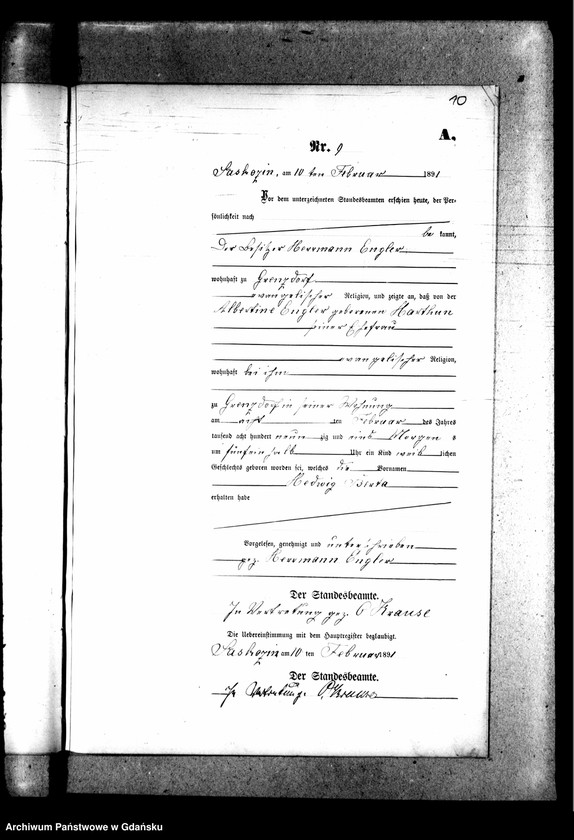 10
A.
Nr. 9
Saskozin, am 10 ten Februar 1891
Vor dem unterzeichneten Standesbeamten erschien heute, der Per-
sönlichkeit nach
be kannt,
Der Besitzer Herrmann Engler
wohnhaft zu Grenzdorf
evangelischer Religion, und zeigte an, daß von der
Albertine Engler geborenen
seiner Ehefrau
evangelischer Religion,
wohnhaft bei ihm
zu Grenzdorf in seiner Wohnung
am ten Februar des Jahres
tausend acht hundert neun zig und eins Morgens
um fünfeinhalb Uhr ein Kind weib lichen
Geschlechts geboren worden sei, welches die Vornamen
Hedwig Berta
erhalten habe
Vorgelesen, genehmigt und unterschrieben
gez. Herrmann Engler
Der Standesbeamte.
In Vertretung gez. Krause
Die Uebereinstimmung mit dem Hauptregister beglaubigt.
Saskozin am 10 ten Februar 1891
Der Standesbeamte.
In Vertretung. Krause
Archiwum Państwowe w Gdańsku